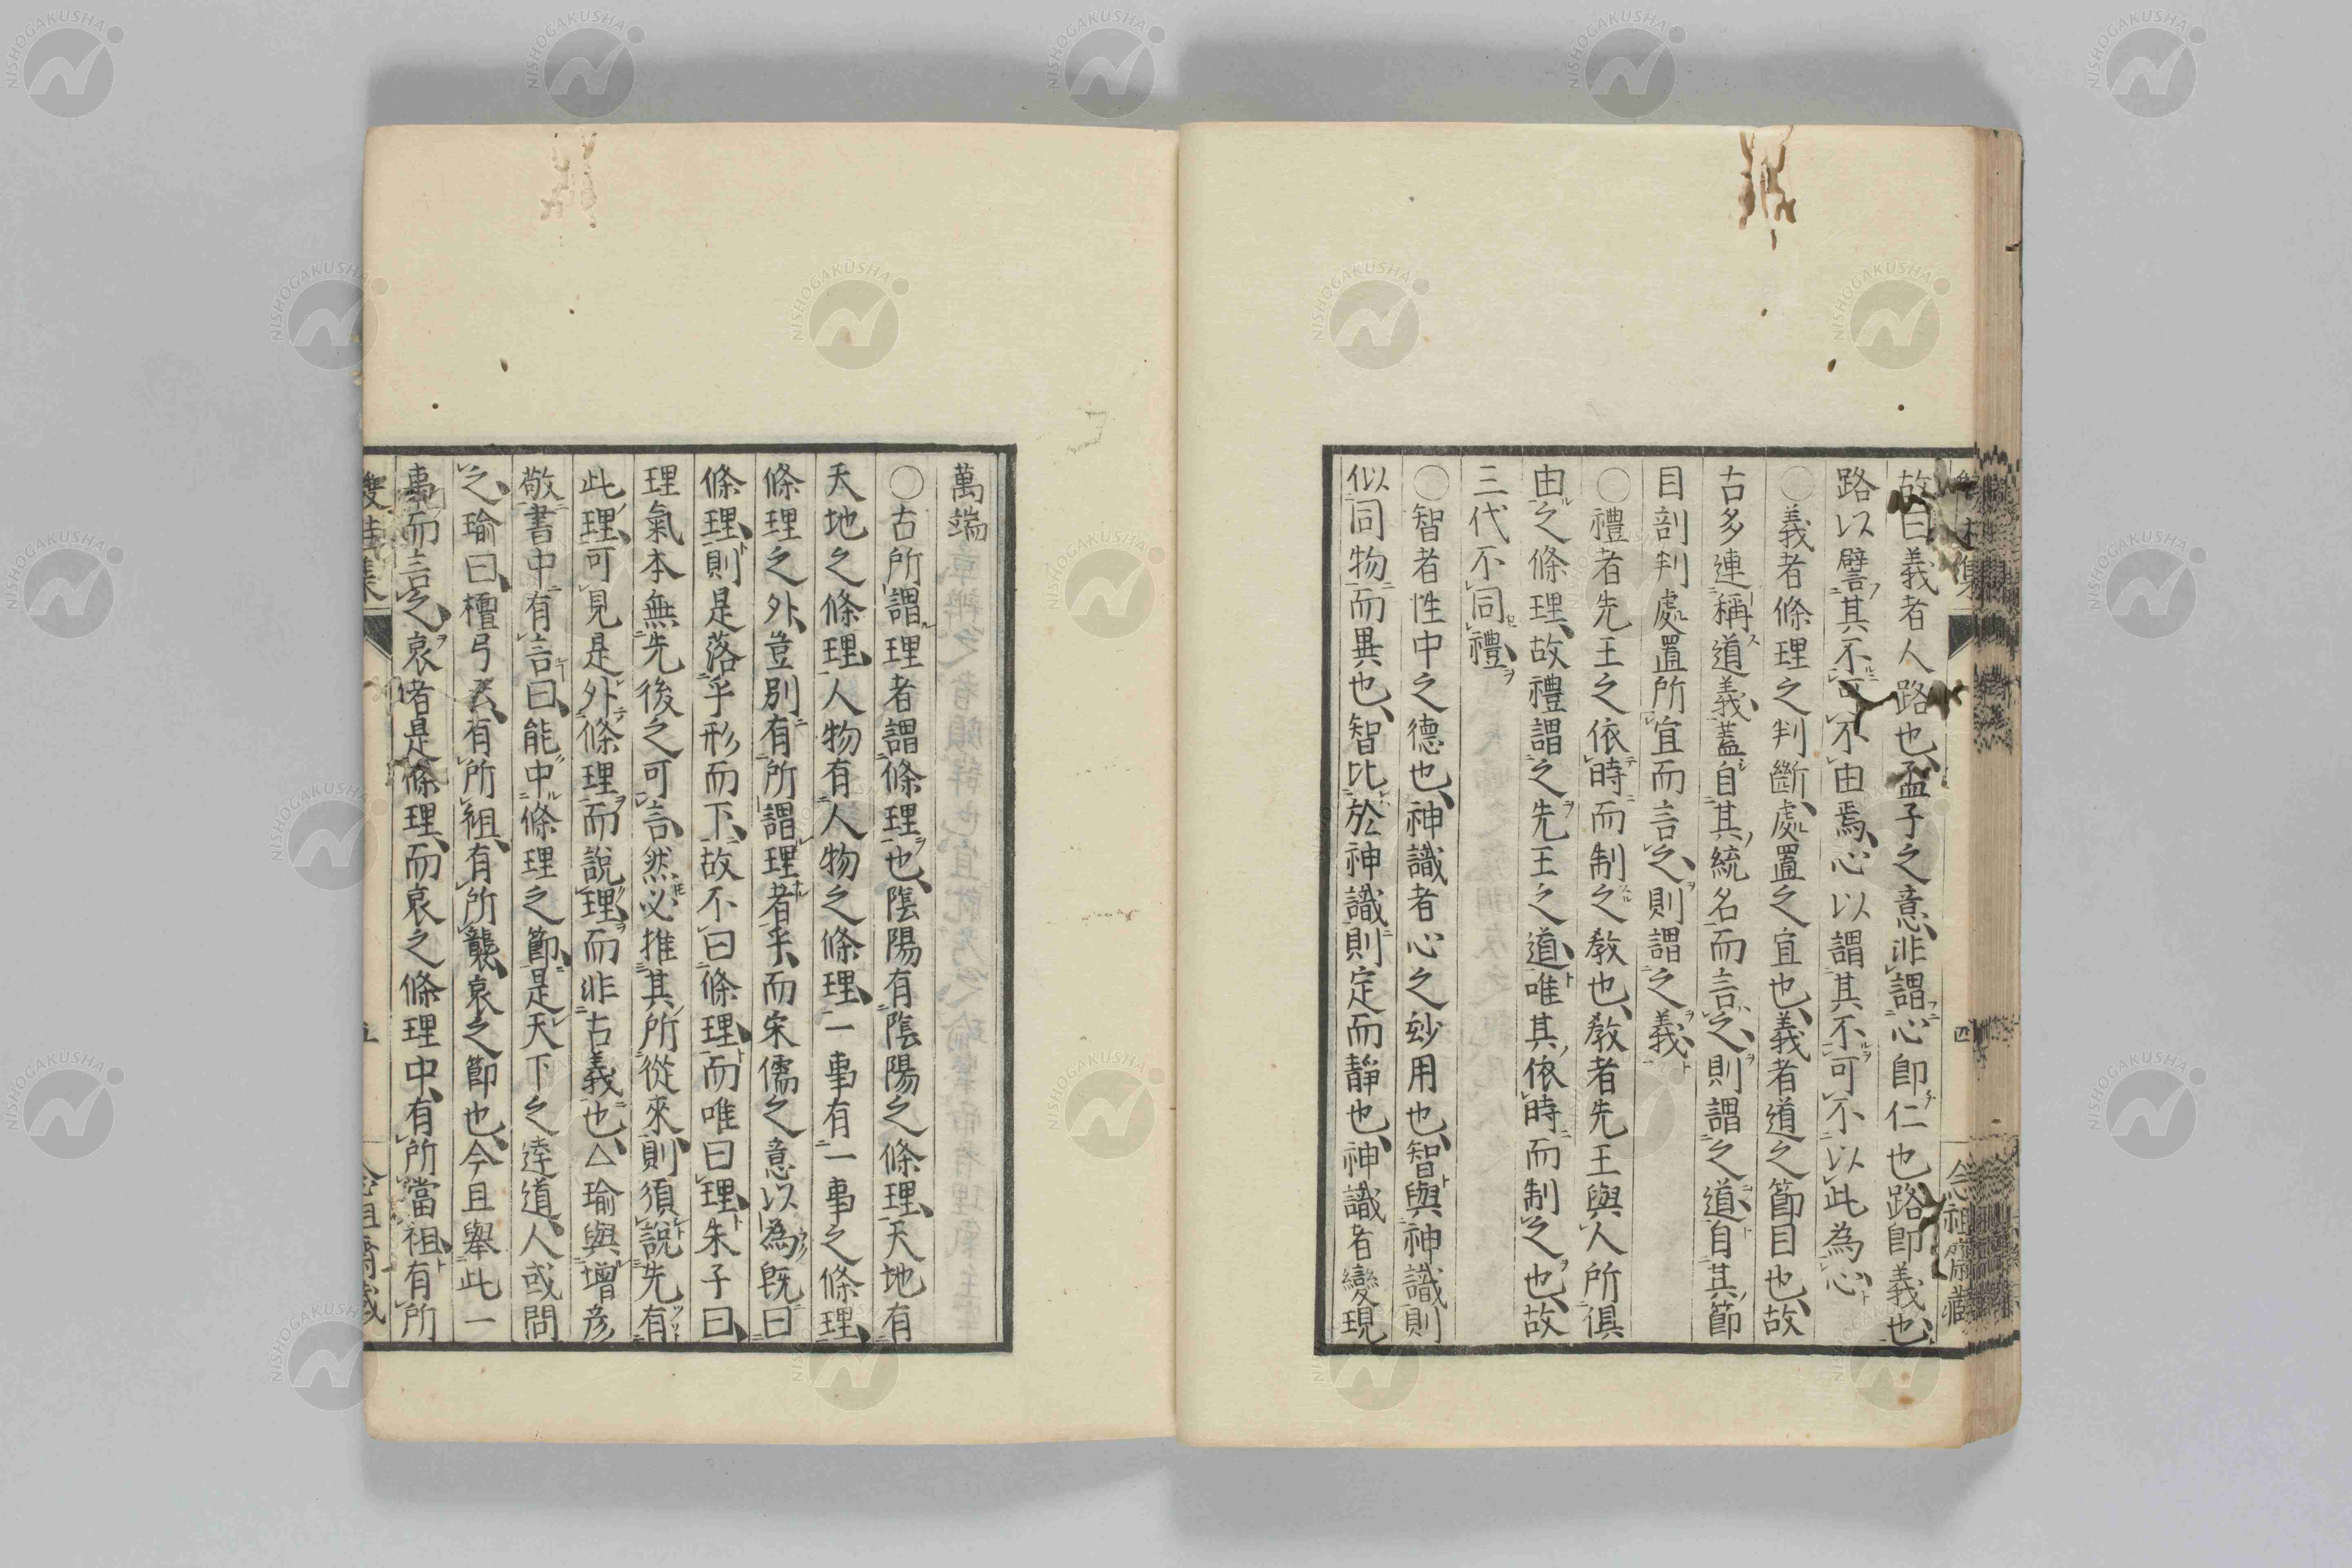 故曰義者人路也孟子之意非謂心即仁也路即義也
路以譬其不可不由焉心以謂其不可不以此為心
〇義者條理之判斷處置之宜也義者道之節目也故
古多連稱道義蓋自其統名而言之則謂之道自其節
目剖判處置所宜而言之則謂之義
〇禮者先王之依時而制之教也教者先王與人所俱
由之條理故禮謂之先王之道唯其依時而制之也故
三代不同禮
〇智者性中之德也神識者心之妙用也智與神識則
似同物而異也智比於神識則定而靜也神識者變現
萬端
〇古所謂理者謂條理也陰陽有陰陽之條理天地有
天地之條理人物有人物之條理一事有一事之條理
條理之外豈別有所謂理者乎而宋儒之意以為既曰
條理則是落乎形而下故不曰條理而唯曰理朱子曰
理氣本無先後之可言然必推其所從來則須說先有
此理可見是外條理而說理而非古義也△瑜與增彦
敬書中有言曰能中條理之節是天下之達道人或問
之瑜曰檀弓云有所組有所襲哀之節也今且舉此一
事而言之哀者是條理而哀之條理中有所當袒有所
NISHOGAKUSHA